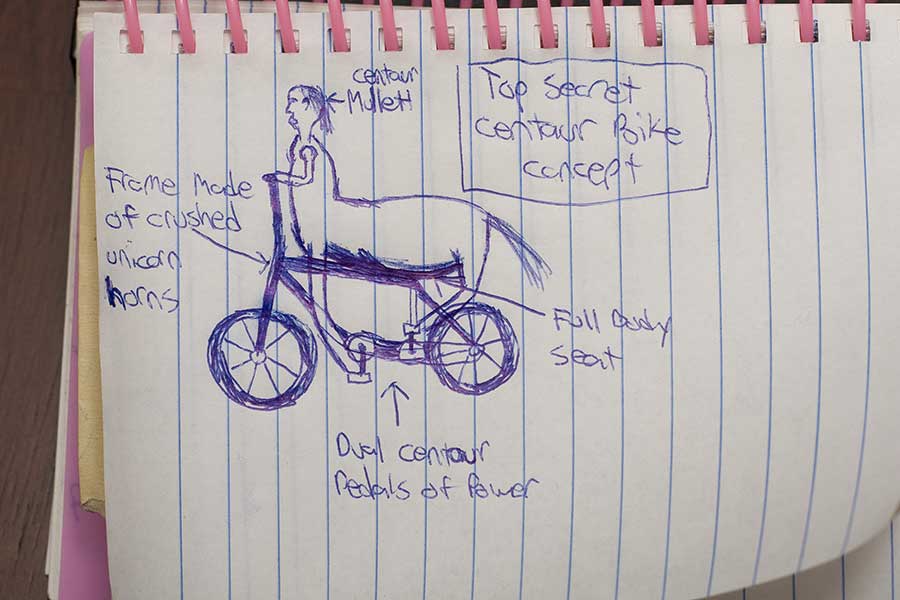 centaur
Mullett
Top Secret
centaur Bike
concept
Frame made
of crushed
unicorn
horns
Full Body
seat
Dual centaur
Pedals of Power